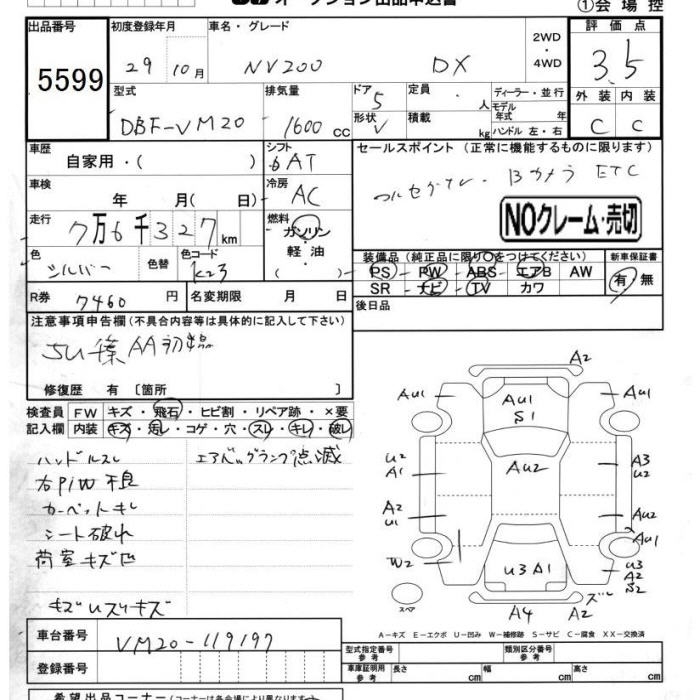 オークション出品申込書 ①会場控
出品番号 初度登録年月 車名・グレード 2WD・4WD 評価点
5599 29年10月 NV200 DX 3.5
型式 排気量 ドア 定員 ディーラー・並行 外装 内装
DBF-VM20 1600cc 5 人 モデル年式 年 C C
形状 V 積載 kg ハンドル 左・右
車歴 シフト セールスポイント(正常に機能するものに限ります)
自家用・( ) 6AT フルセグTV・Bカメラ ETC
車検 冷房
年 月( 日) AC
走行 燃料 NOクレーム・売切
7万6千327km ガソリン・軽油・( )
色 色替 色コード 装備品(純正品に限り○をつけてください) 新車保証書
シルバー K23 PS PW ABS エアB AW 有・無
R券 7460円 名変期限 月 日 SR ナビ TV カワ
注意事項申告欄(不具合内容等は具体的に記入して下さい) 後日品
AA初
修復歴 有 [箇所 ]
検査員 FW キズ・飛石・ヒビ割・リペア跡・×要
記入欄 内装 キズ・汚レ・コゲ・穴・スレ・キレ・破レ
ハンドルスレ エアバッグランプ点滅
右P/W不良
カーペットキレ
シート破れ
荷室キズ凹
キズUズリキズ
A2
AU1 AU1 AU1
S1
U2 AU2 A3
A1 U2
A2 AU2
U1 AU1
W2 U3A1 U3
A2
S2
スペア ズレ
A4 A2
A-キズ E-エクボ U-凹み W-補修跡 S-サビ C-腐食 XX-交換済
車台番号 VM20-119197 型式指定番号 参考 類別区分番号 参考
登録番号 車庫証明用 参考 長さ cm 幅 cm 高さ cm
希望出品コーナー(コーナーは各会場により異なります)